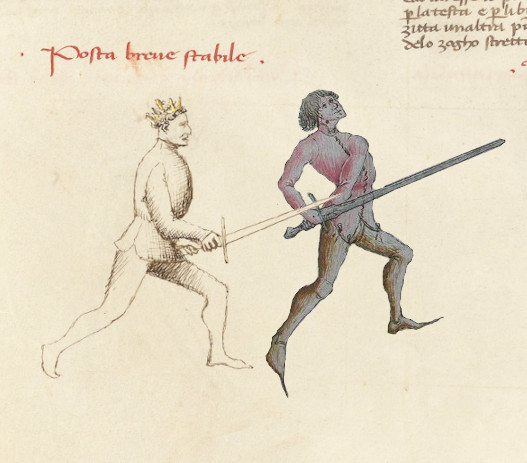 Posta breue stabile.
p la testa e p li b
zitta unaltra p
delo zogho strett